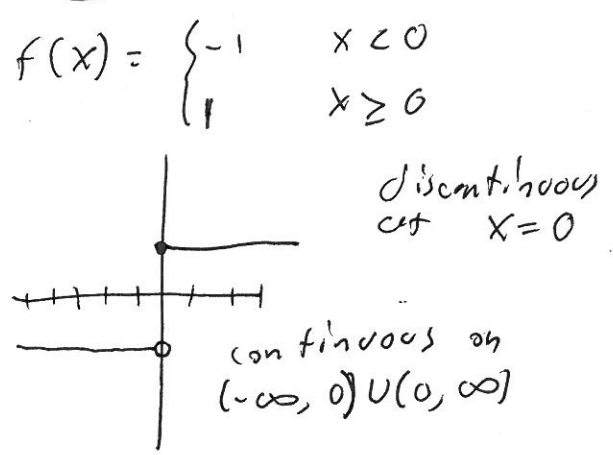 f(x) = { -1 x < 0
1 x ≥ 0
discontinuous
at x = 0
continuous on
(-∞, 0) ∪ (0, ∞)